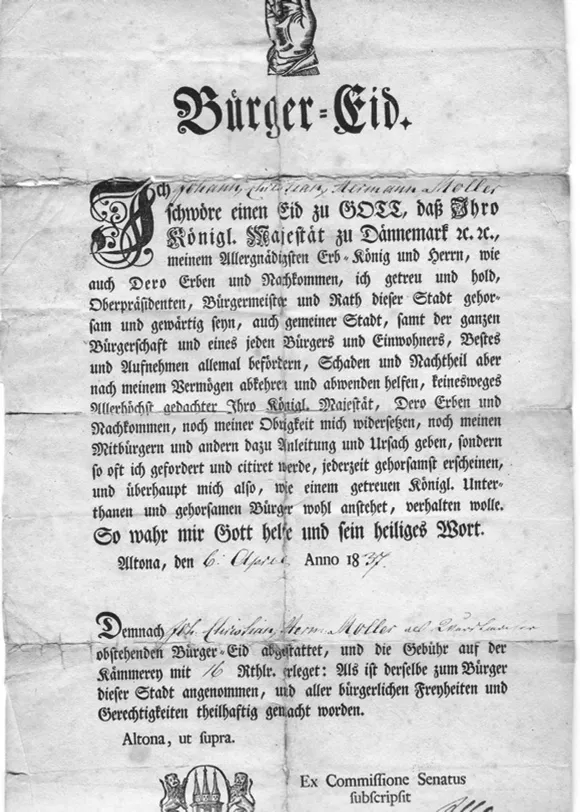 Bürger=Eid.
Ich Johann Christian Hermann Moller
schwöre einen Eid zu GOTT, daß Ihro
Königl. Majestät zu Dännemark ꝛc. ꝛc.,
meinem Allergnädigsten Erb=König und Herrn, wie
auch Dero Erben und Nachkommen, ich getreu und hold,
Oberpräsidenten, Bürgermeister und Rath dieser Stadt gehor=
sam und gewärtig seyn, auch gemeiner Stadt, samt der ganzen
Bürgerschaft und eines jeden Bürgers und Einwohners, Bestes
und Aufnehmen allemal befördern, Schaden und Nachtheil aber
nach meinem Vermögen abkehren und abwenden helfen, keinesweges
Allerhöchst gedachter Ihro Königl. Majestät, Dero Erben und
Nachkommen, noch meiner Obrigkeit mich widersetzen, noch meinen
Mitbürgern und andern dazu Anleitung und Ursach geben, sondern
so oft ich gefordert und citiret werde, jederzeit gehorsamst erscheinen,
und überhaupt mich also, wie einem getreuen Königl. Unter=
thanen und gehorsamen Bürger wohl anstehet, verhalten wolle.
So wahr mir Gott helfe und sein heiliges Wort.
Altona, den 6. April Anno 1837.
Demnach Joh. Christian Herm. Moller als
obstehenden Bürger=Eid abgestattet, und die Gebühr auf der
Kämmerey mit 16 Rthlr. erleget: Als ist derselbe zum Bürger
dieser Stadt angenommen, und aller bürgerlichen Freyheiten und
Gerechtigkeiten theilhaftig gemacht worden.
Altona, ut supra.
Ex Commissione Senatus
subscripsit